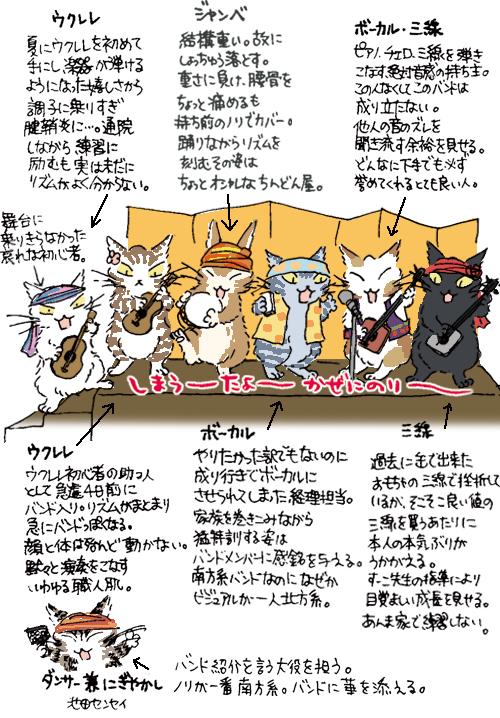 ウクレレ
夏にウクレレを初めて
手にし楽器が弾ける
ようになった嬉しさから
調子に乗りすぎ
腱鞘炎に…。通院
しながら練習に
励むも実は未だに
リズムがよく分からない。
ジャンベ
結構重い。故に
しょっちゅう落とす。
重さに負け、腰骨を
ちょっと痛めるも
持ち前のノリでカバー。
踊りながらリズムを
刻むその姿は
ちょっとオシャレなちんどん屋。
ボーカル・三線
ピアノ、チェロ、三線を弾き
こなす絶対音感の持ち主。
この人なくしてこのバンドは
成り立たない。
他人の音のズレを
聞き流す余裕を見せる。
どんなに下手でも必ず
誉めてくれるとても良い人。
舞台に
乗りきらなかった
哀れな初心者。
しまうーたよー かぜにのりー
ウクレレ
ウクレレ初心者の助っ人
として急遽4日前に
バンド入り。リズムがまとまり
急にバンドっぽくなる。
顔と体は殆んど動かない。
黙々と演奏をこなす
いわゆる職人肌。
ボーカル
やりたかった訳でもないのに
成り行きでボーカルに
させられてしまった経理担当。
家族を巻きこみながら
猛特訓する姿は
バンドメンバーに感銘を与える。
南方系バンドなのになぜか
ビジュアルが一人北方系。
三線
過去に缶で出来た
おもちゃの三線で挫折して
いるが、そこそこ良い値の
三線を買うあたりに
本人の本気ぶりが
うかがえる。
すーこ先生の指導により
目覚ましい成長を見せる。
あんま家で練習しない。
ダンサー兼にぎやかし
池田センセイ
バンド紹介を言う大役を担う。
ノリが一番南方系。バンドに華を添える。